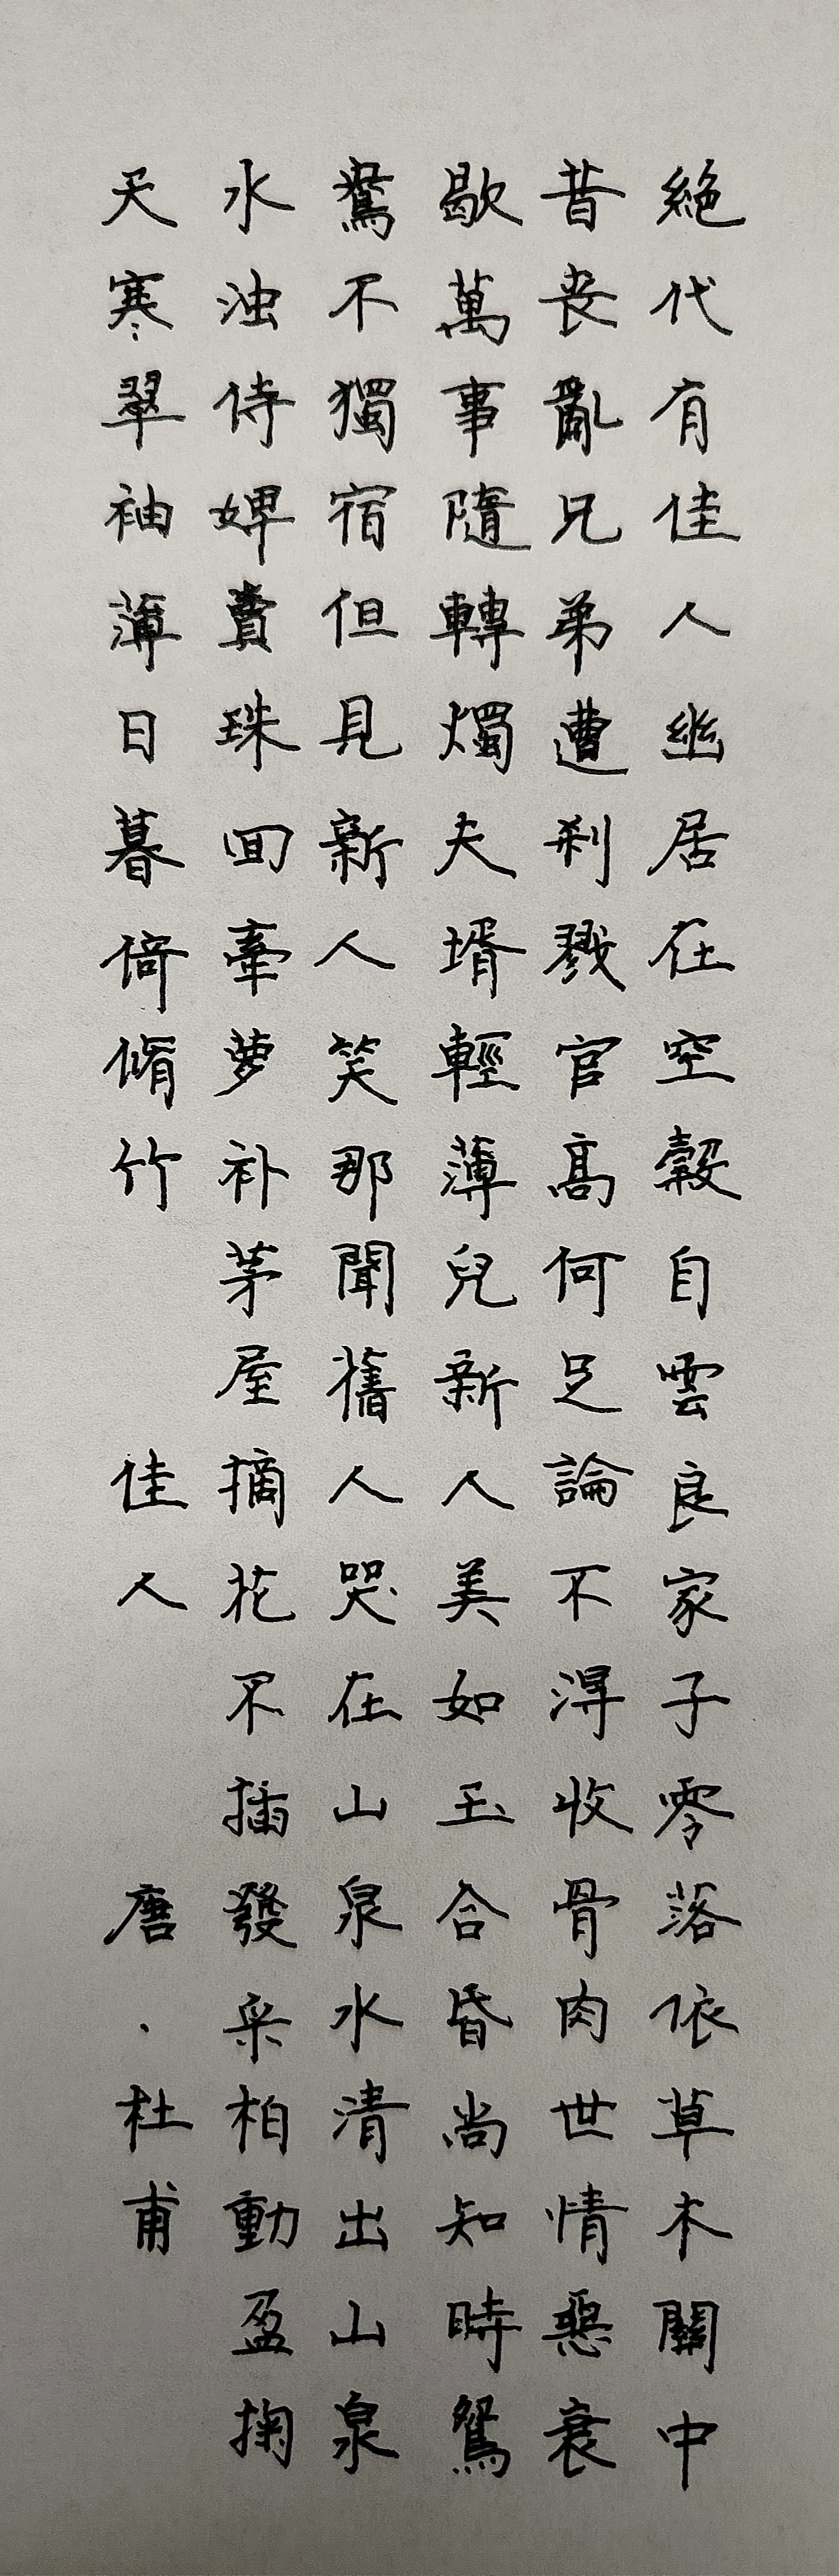 絶代有佳人幽居在空穀自雲良家子零落依草木關中
昔丧亂兄弟遭刹戮官高何足論不淂收骨肉世情惡衰
歇萬事隨轉燭夫壻輕薄兒新人美如玉合昏尚知時鴛
鴦不獨宿但見新人笑那聞舊人哭在山泉水清出山泉
水浊侍婢賣珠回牽萝补茅屋摘花不插發采柏動盈掬
天寒翠袖薄日暮倚脩竹 佳人 唐·杜甫